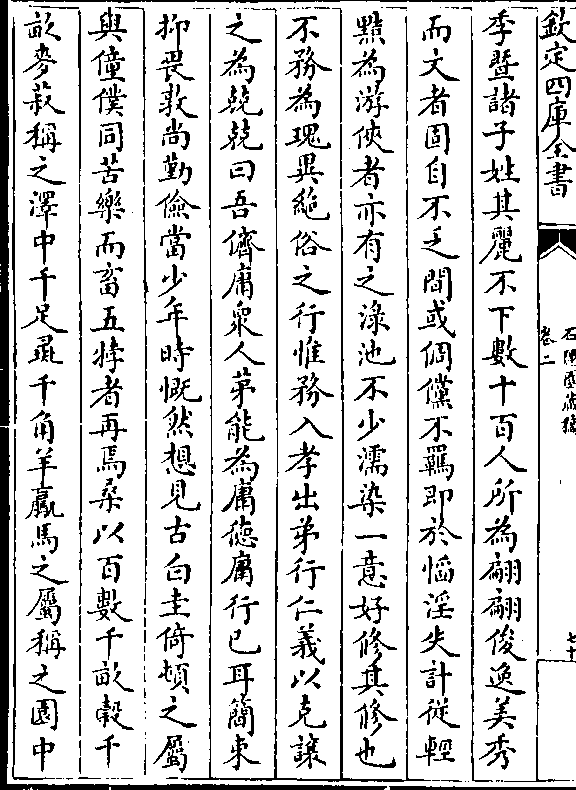 欽定四庫全書
卷二
石隱園藏稿
七十
季暨諸子姓其麗不下數十百人所為翩翩俊逸美秀
而文者固自不乏間或倜儻不羈即於慆淫失計從輕
黠為游俠者亦有之淥池不少濡染一意好修其修也
不務為瑰異絶俗之行惟務入孝出弟行仁義以克讓
之為兢兢曰吾儕庸衆人苐能為庸德庸行已耳簡束
抑畏敦尚勤儉當少年時慨然想見古白圭倚頓之屬
與僮僕同苦樂而畜五牸者再焉桑以百數千畝穀千
畝麥菽稱之澤中千足彘千角羊羸馬之屬稱之園中